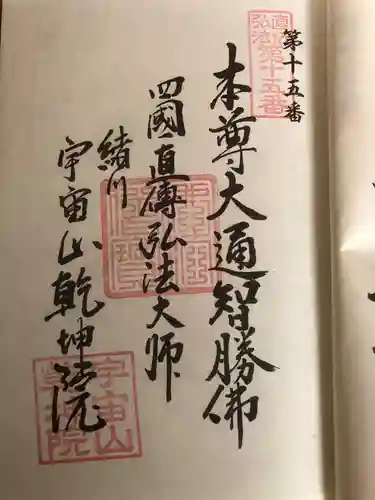 第十五番
直傳弘法第十五番
本尊大通智勝佛
四國直傳弘法大師
緒川
宇宙山乾坤院
宇宙山乾坤院